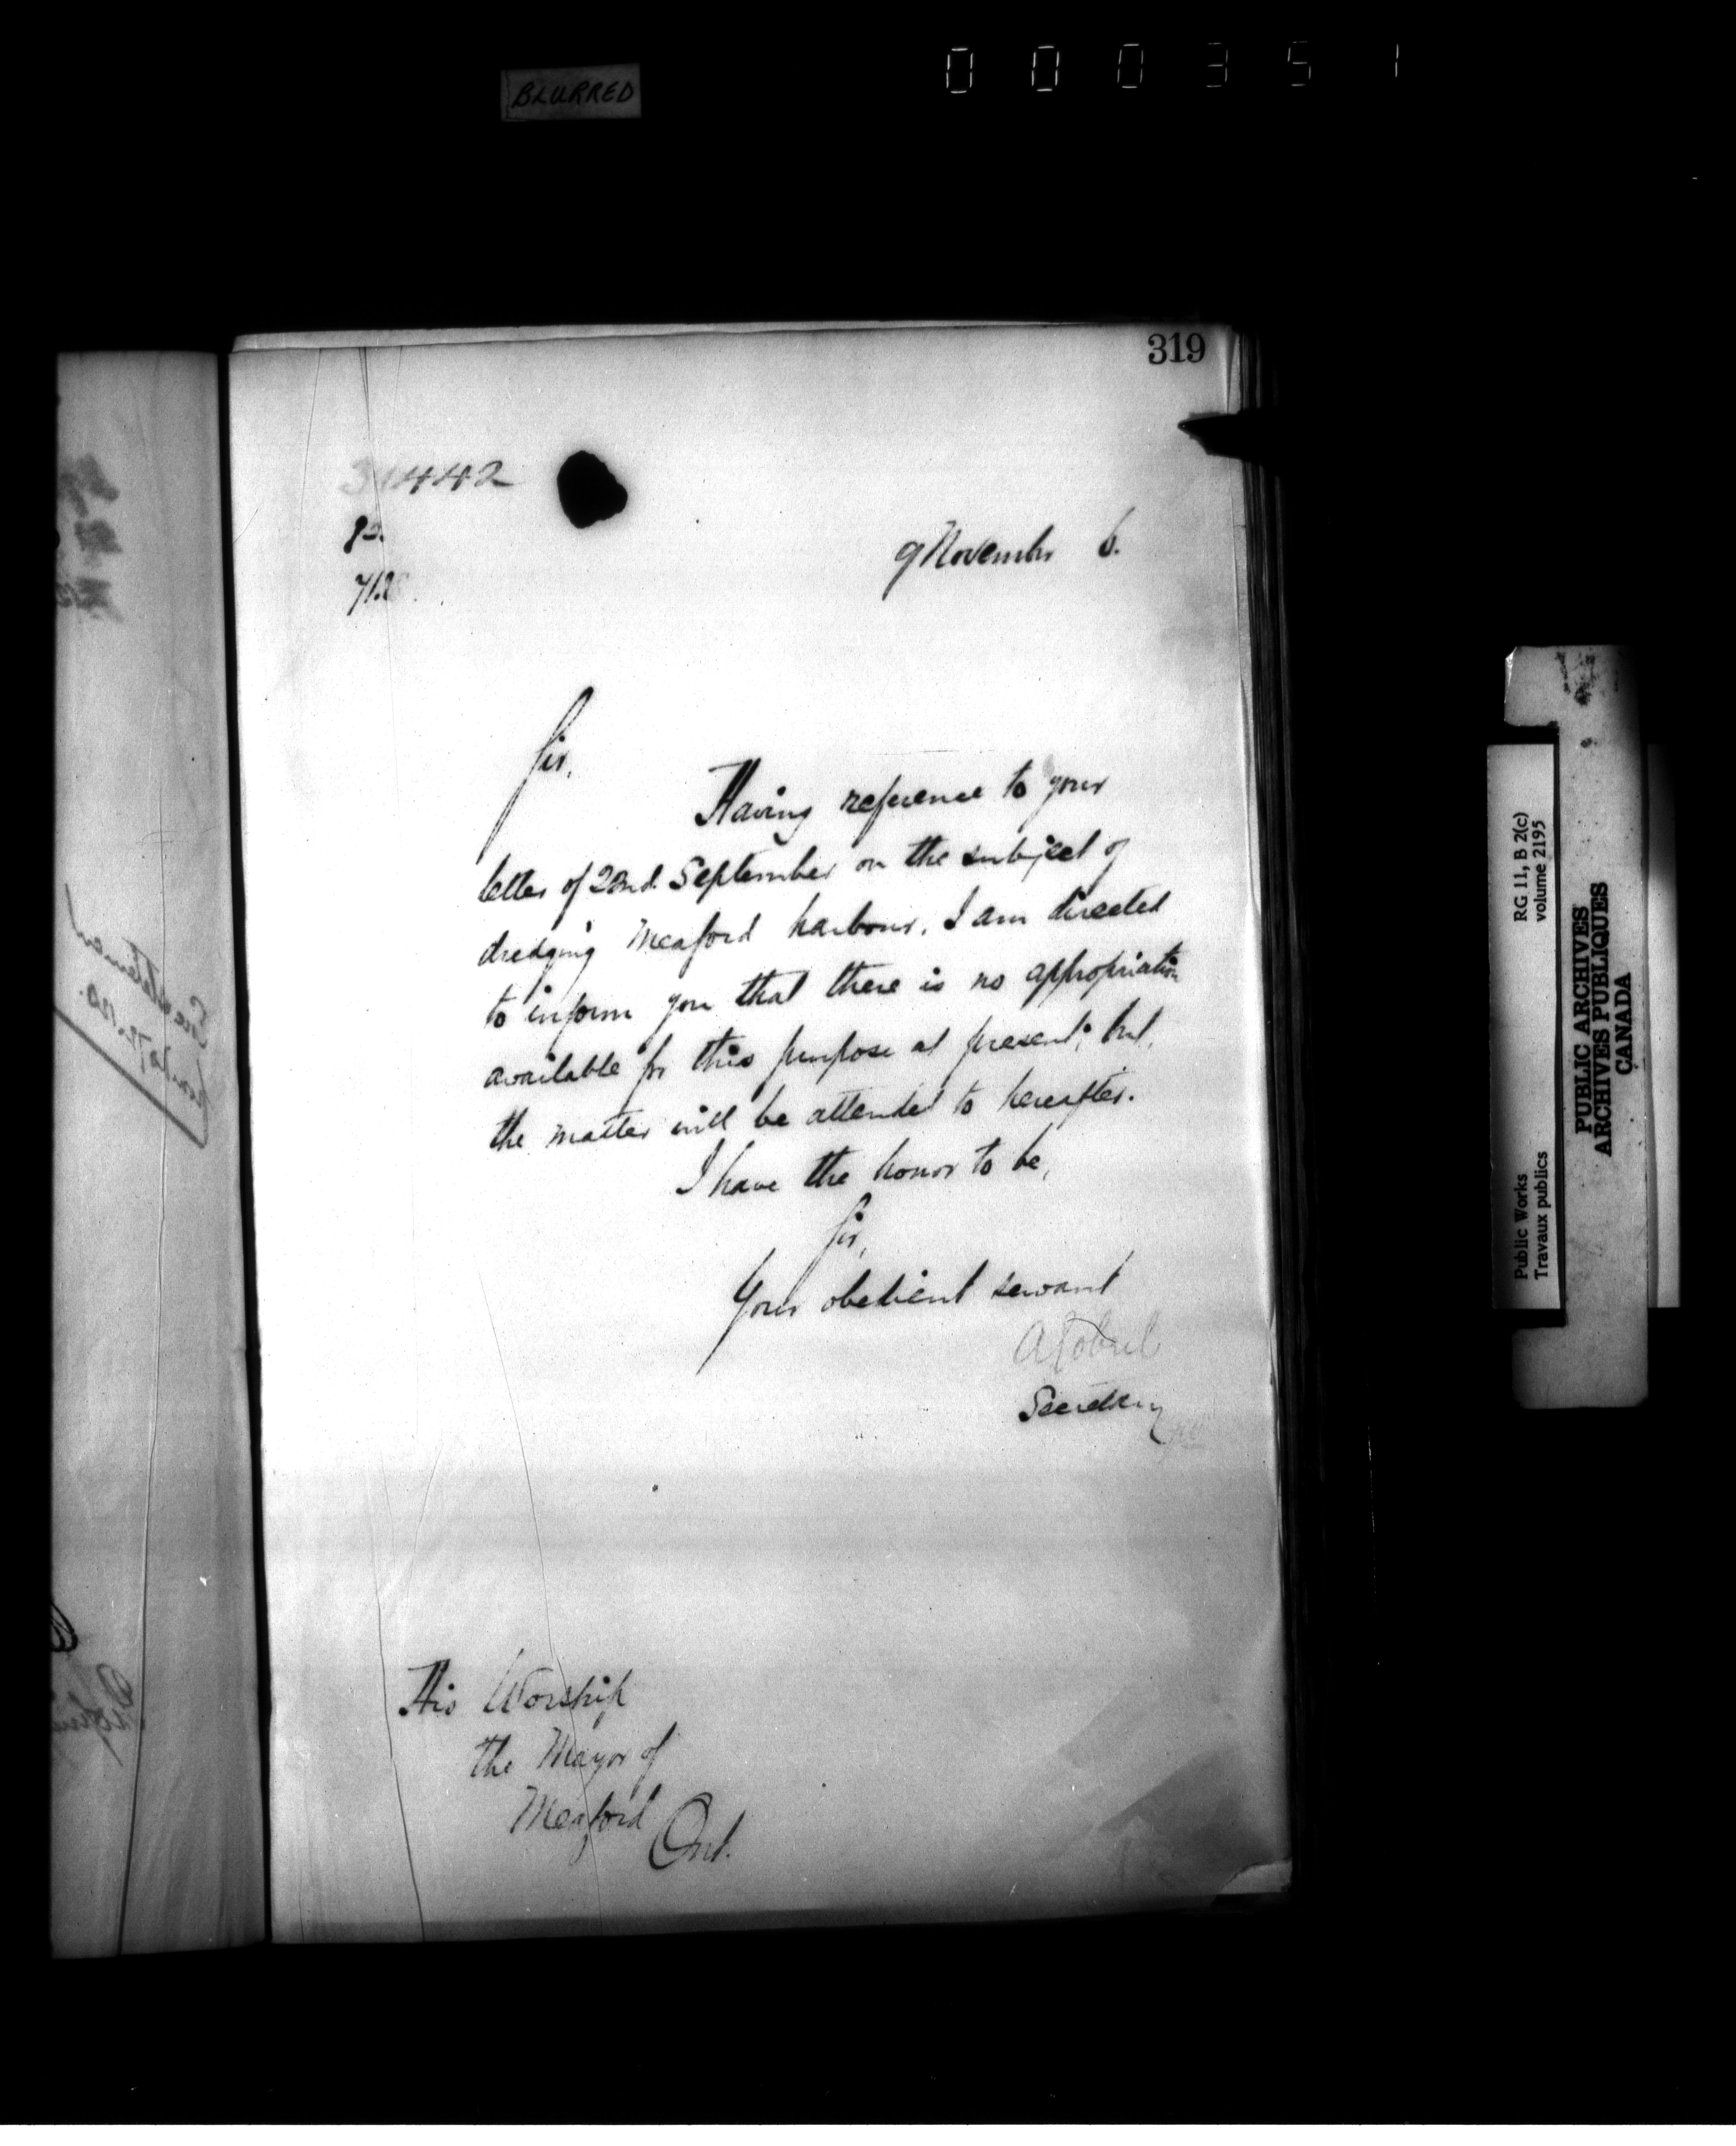 BLURRED
000351
319
9 November 6.
Sir,
Having reference to your
letter of 22nd September on the subject of
dredging Meaford harbour, I am directed
to inform you that there is no appropriation
available for this purpose at present; but,
the matter will be attended to hereafter.
I have the honor to be,
Sir,
Your obedient servant
AGobeil
Secretary
His Worship
the Mayor of
Meaford Ont.
RG 11, B 2(c)
volume 2195
Public Works
Travaux publics
PUBLIC ARCHIVES
ARCHIVES PUBLIQUES
CANADA